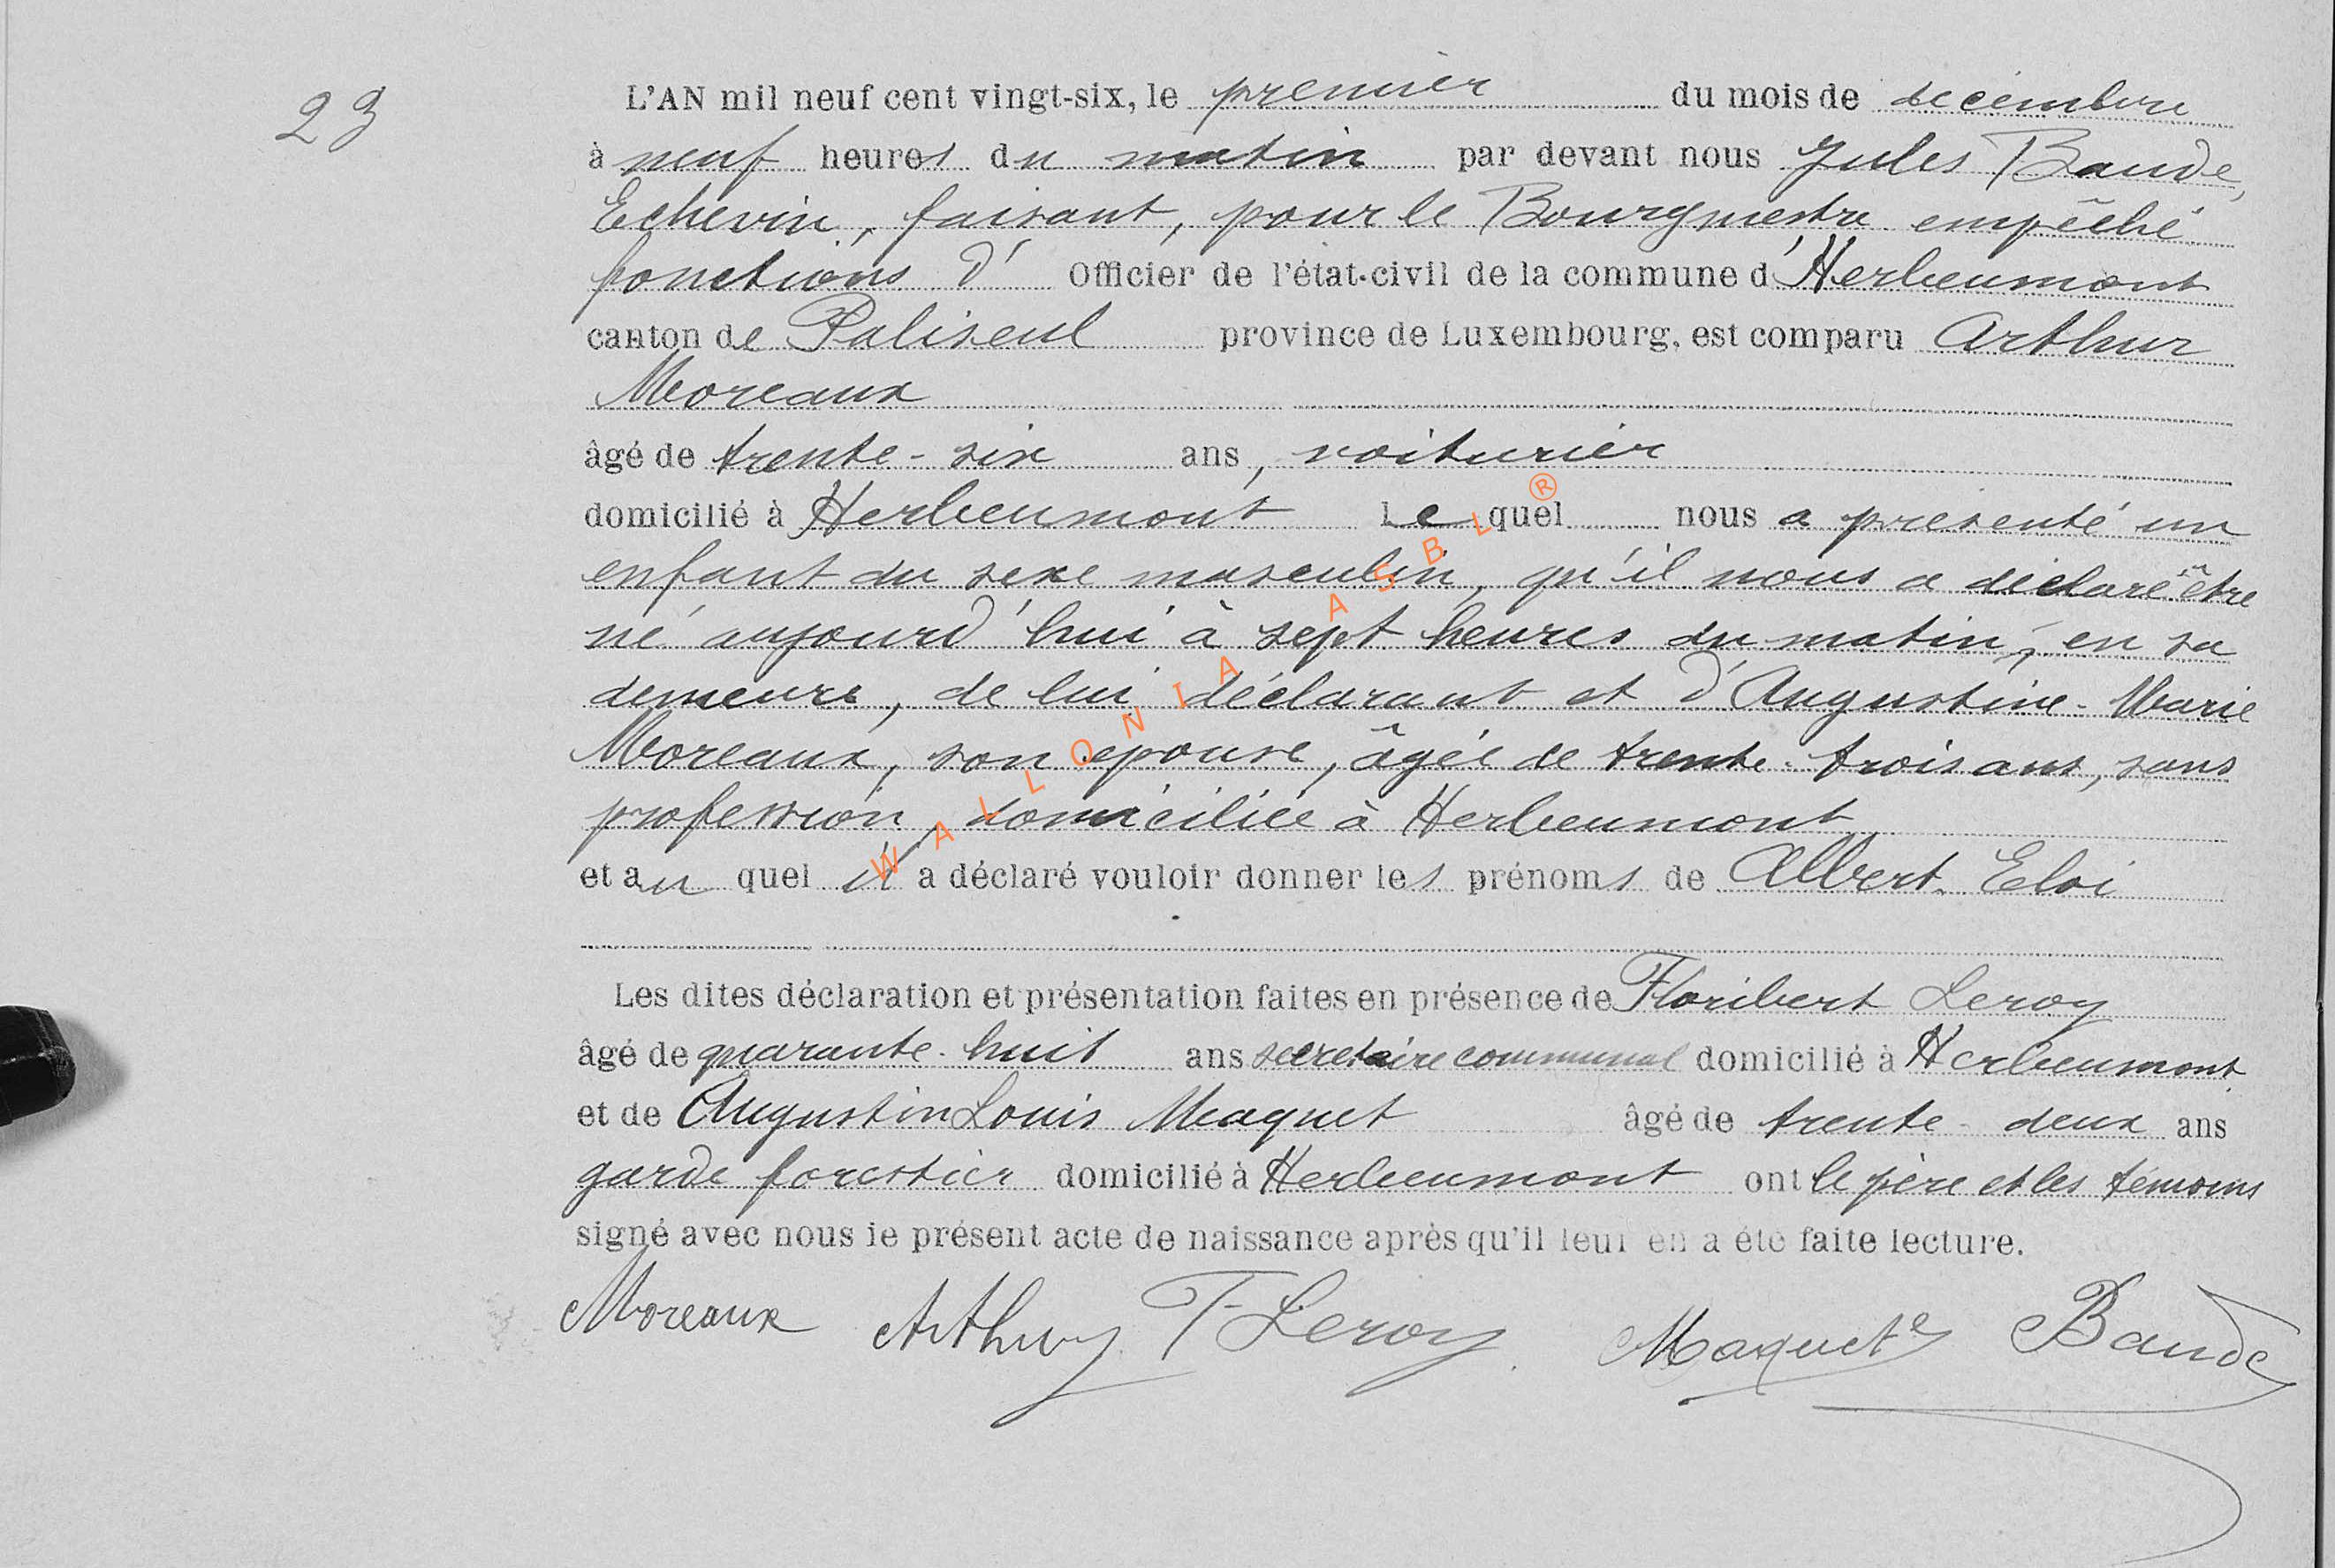 23
L'AN mil neuf cent vingt-six, le premier du mois de décembre
à neuf heures du matin par devant nous Jules Baude,
Echevin, faisant, pour le Bourgmestre empêché
fonctions d' Officier de l'état-civil de la commune d'Herbeumont
canton de Paliseul province de Luxembourg, est comparu Arthur
Moreaux
âgé de trente-six ans, voiturier
domicilié à Herbeumont Lequel nous a présenté un
enfant du sexe masculin, qu'il nous a déclaré être
né aujourd'hui à sept heures du matin, en sa
demeure, de lui déclarant et d'Augustine-Marie
Moreaux, son épouse, âgée de trente-trois ans, sans
profession, domiciliée à Herbeumont
et au quel il a déclaré vouloir donner les prénoms de Albert-Eloi
Les dites déclaration et présentation faites en présence de Floribert Leroy
âgé de quarante-huit ans secrétaire communal domicilié à Herbeumont
et de Augustin Louis Maquet âgé de trente-deux ans
garde forestier domicilié à Herbeumont ont le père et les témoins
signé avec nous le présent acte de naissance après qu'il leur en a été faite lecture.
Moreaux Arthur F Leroy Maquet Baude
WALLONIA ASBL ®